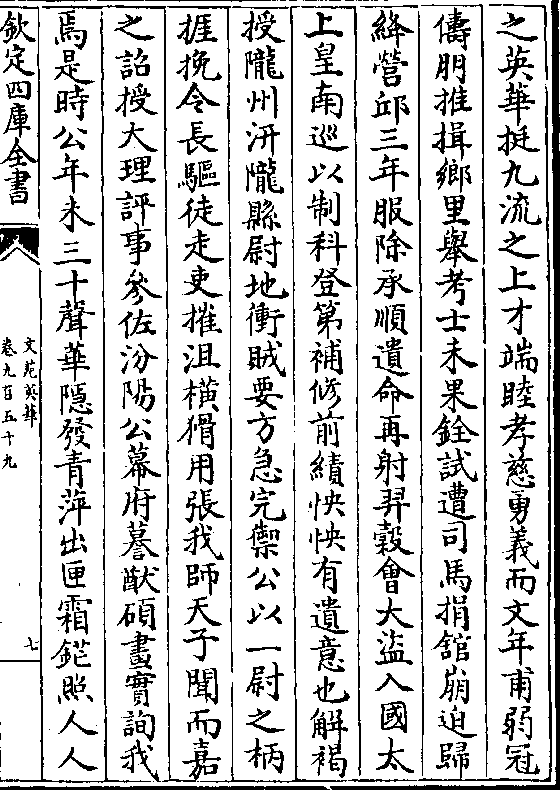 之英華挺九流之上才端睦孝慈勇義而文年甫弱冠
儔朋推揖鄉里舉考士未果銓試遭司馬捐舘崩迫歸
絳營邱三年服除承順遺命再射羿彀會大盜入國太
上皇南巡以制科登第補修前績怏怏有遺意也解褐
授隴州汧隴縣尉地衝賊要方急完禦公以一尉之柄
捱挽令長驅徒走吏摧沮橫猾用張我師天子聞而嘉
之詔授大理評事參佐汾陽公幕府謩猷碩畫實詢我
焉是時公年未三十聲華隱發青萍出匣霜鋩照人人
欽定四庫全書
文苑英華
卷九百五十九
七